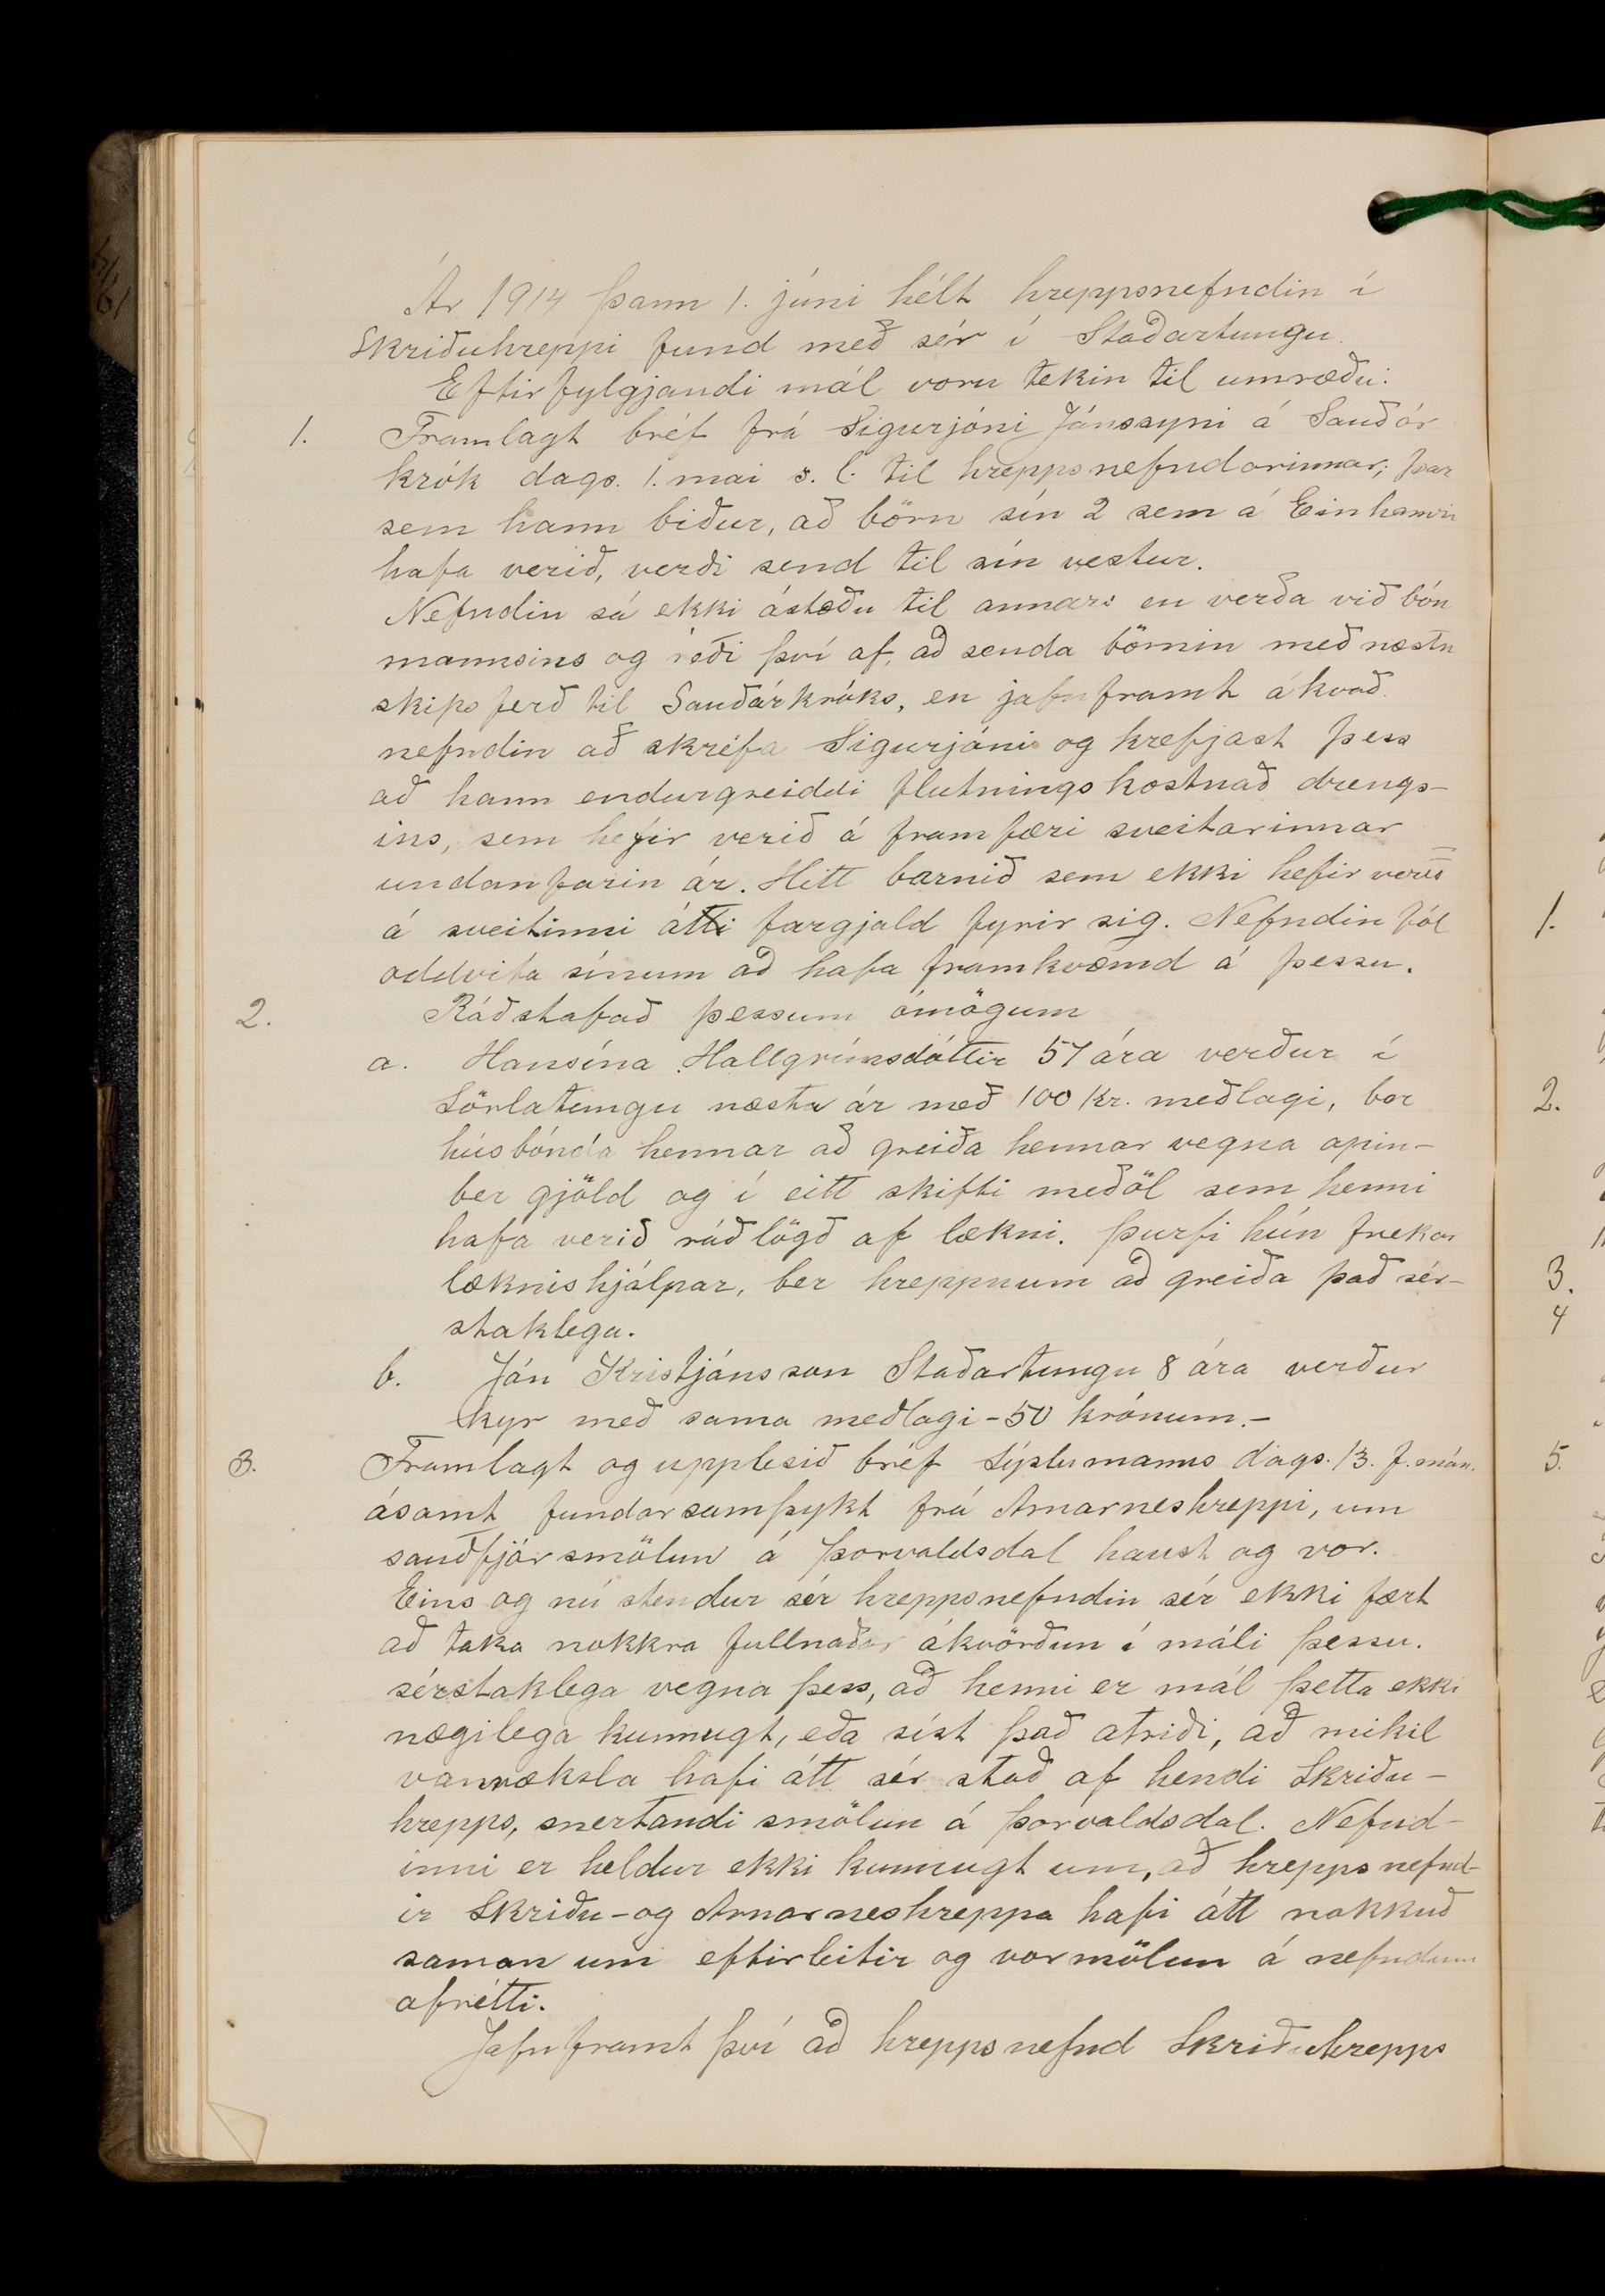 Ár 1914 þann 1. júni hélt hreppsnefndin í
Skriðuhreppi fund með sér í Staðartungu.
Eftirfylgjandi mál voru tekin til umræðu:
1. Framlagt bréf frá Sigurjóni Jónssyni á Sauðár
krók dags. 1. mai s. l. til hreppsnefndarinnar; þar
sem hann biður, að börn sín 2 sem á Einhamri
hafa verið, verði send til sín vestur.
Nefndin sá ekki ástæðu til annars en verða við bón
mannsins og réði því af, að senda börnin með næstu
skipsferð til Sauðárkróks, en jafnframt ákvað
nefndin að skrifa Sigurjóni og krefjast þess
að hann endurgreiddi flutningskostnað drengs-
ins, sem hefir verið á framfæri sveitarinnar
undanfarin ár. Hitt barnið sem ekki hefir verið
á sveitinni átti fargjald fyrir sig. Nefndin fól
oddvita sínum að hafa framkvæmd á þessu.
2. Ráðstafað þessum ómögum
a. Hansína Hallgrímsdóttir 57 ára verður í
Sörlatungu næsta ár með 100 kr. meðlagi, ber
húsbónda hennar að greiða hennar vegna opin-
ber gjöld og í eitt skifti meðöl sem henni
hafa verið ráðlögð af lækni. Þurfi hún frekar
læknishjálpar, ber hreppnum að greiða það sér-
staklega.
b. Jón Kristjánsson Staðartungu 8 ára verður
kyr með sama meðlagi - 50 krónum. -
3. Framlagt og upplesið bréf sýslumanns dags. 13. f. mán.
ásamt fundarsamþykt frá Arnarneshreppi, um
sauðfjársmölun á Þorvaldsdal haust og vor.
Eins og nú stendur sér hreppsnefndin sér ekki fært
að taka nokkra fullnaðar ákvörðun í máli þessu.
sérstaklega vegna þess, að henni er mál þetta ekki
nægilega kunnugt, eða síst það atriði, að mikil
vanræksla hafi átt sér stað af hendi Skriðu-
hrepps, snertandi smölun á Þorvaldsdal. Nefnd-
inni er heldur ekki kunnugt um, að hreppsnefnd-
ir Skriðu- og Arnarneshreppa hafi átt nokkuð
saman um eftirleitir og vormölun á nefndum
afrétti.
Jafnframt því að hreppsnefnd Skriðuhrepps
1.
2.
3.
4
5.